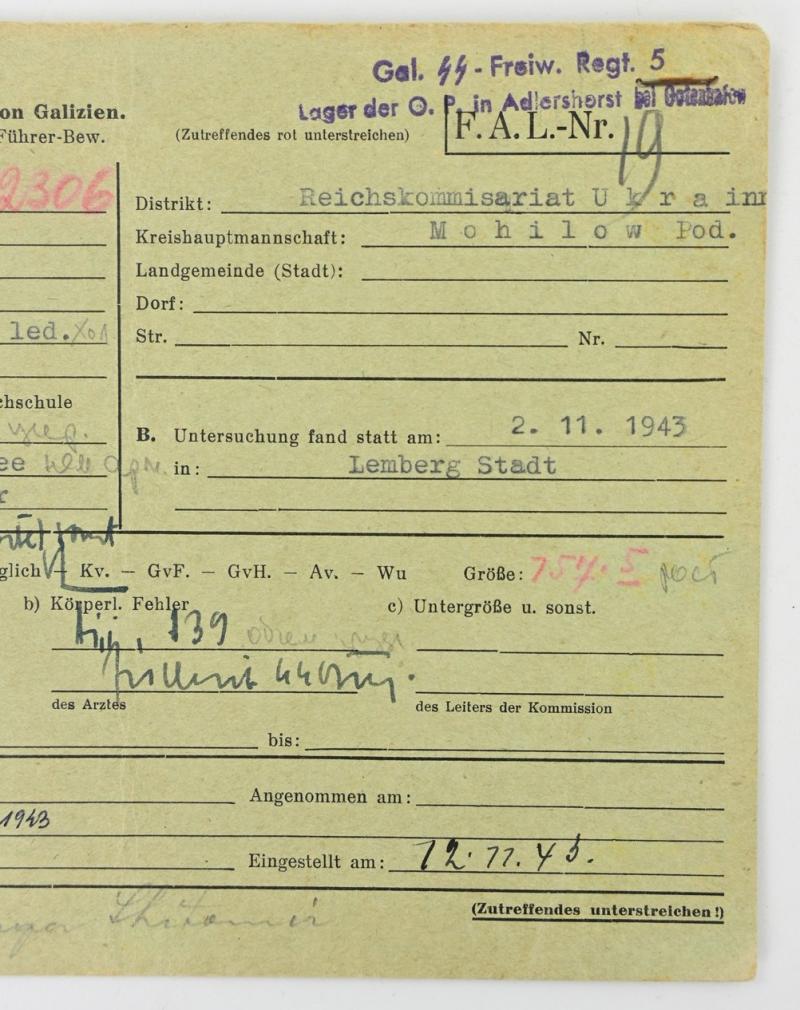 Gal. ᛋᛋ-Freiw. Regt. 5
Lager der O. P. in Adlershorst bei Gotenhafen
on Galizien.
Führer-Bew.
(Zutreffendes rot unterstreichen)
F. A. L.-Nr. 19
2306
Distrikt: Reichskommisariat U k r a in
Kreishauptmannschaft: M o h i l o w Pod.
Landgemeinde (Stadt):
Dorf:
led.
Str. Nr.
chschule
B. Untersuchung fand statt am: 2. 11. 1943
ee
in: Lemberg Stadt
r
glich – Kv. – GvF. – GvH. – Av. – Wu Größe: 154.5
b) Körperl. Fehler c) Untergröße u. sonst.
139
des Arztes des Leiters der Kommission
bis:
Angenommen am:
1943
Eingestellt am: 12. 11. 43.
Shitomir
(Zutreffendes unterstreichen!)